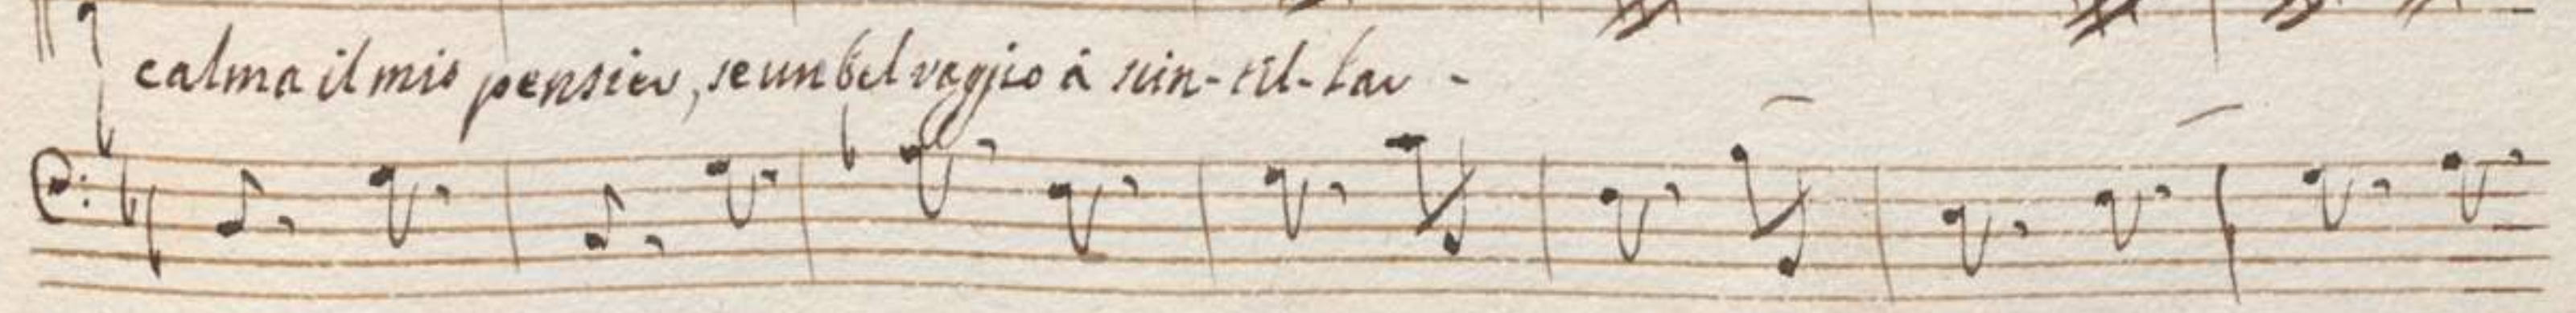 calma il mio pensier, se un bel raggio à scin-til-lar -